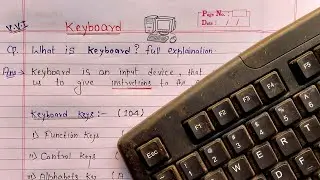 V.V.I
Keyboard
Page No.:
Date: / /
Q. What is keyboard? full explaination
Ans → Keyboard is an input device, that
us to give instructions to the
Keyboard keys :- (104)
i) Function Keys
ii) Control Keys
iii) Alphabets Key
Esc
F1
F2
F3
F4
F5
1
2
3
4
5
6
Q
W
E
R